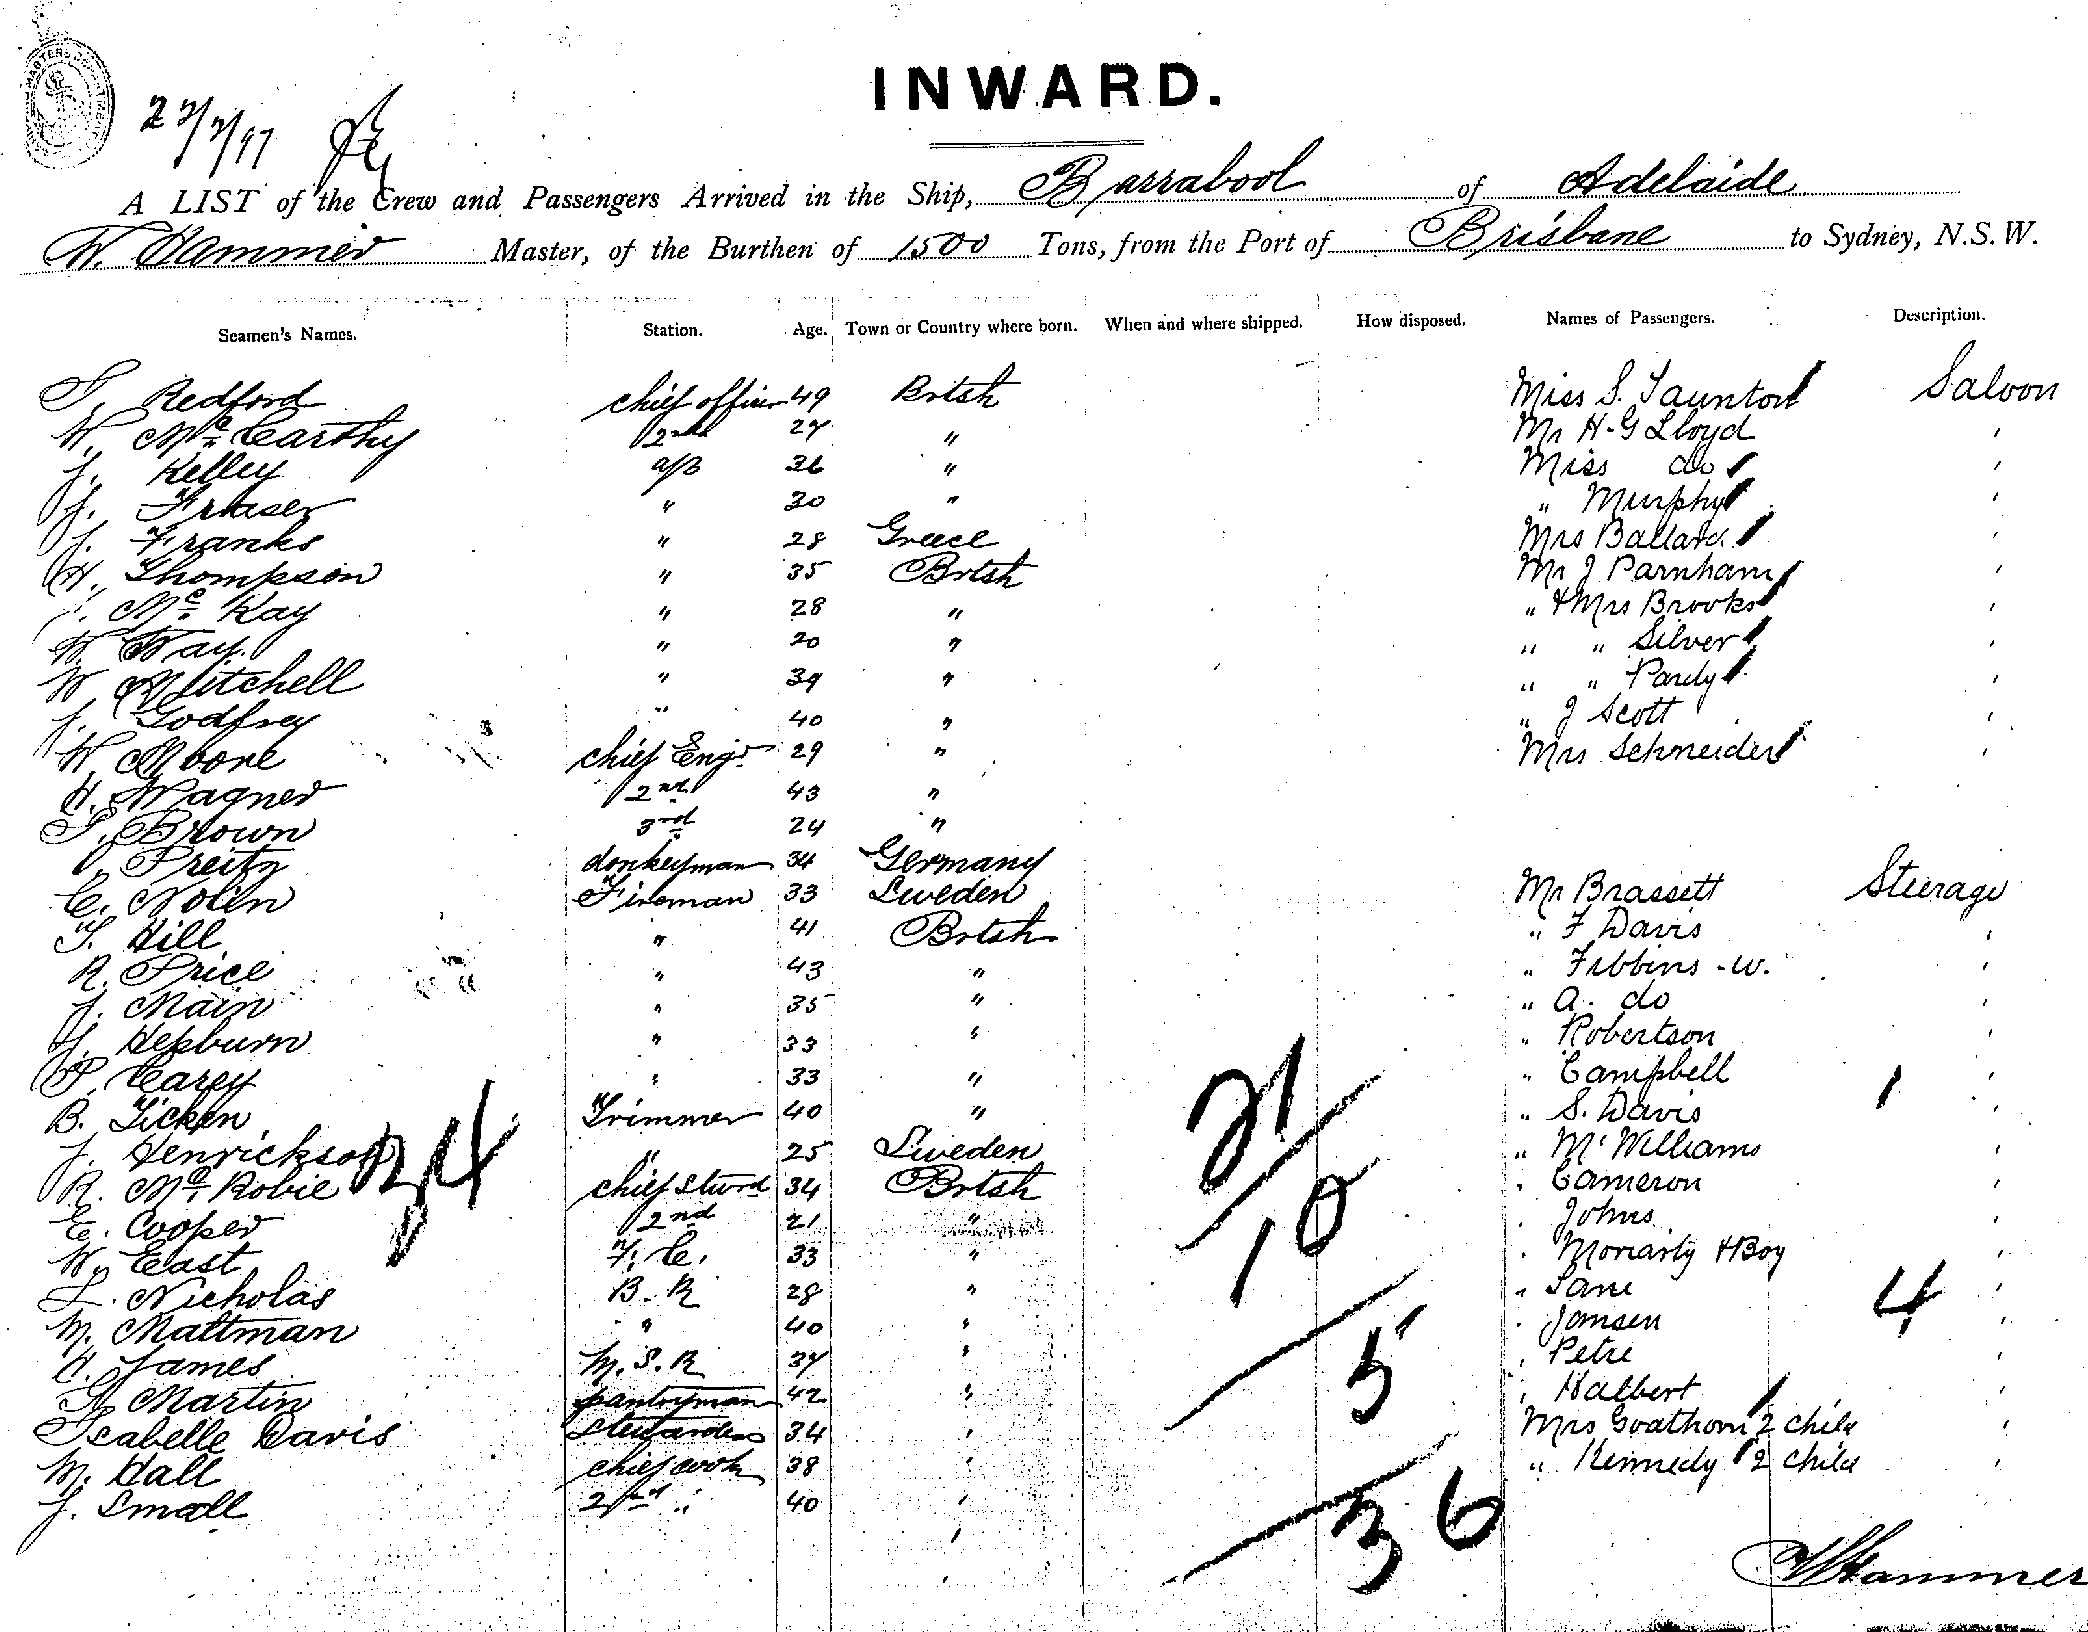 INWARD.
A LIST of the Crew and Passengers Arrived in the Ship, Barrabool of Adelaide
W. Hammer Master, of the Burthen of 1500 Tons, from the Port of Brisbane to Sydney, N.S.W.
Seamen's Names. Station. Age. Town or Country where born. When and where shipped. How disposed. Names of Passengers. Description.
Redford chief officer 49 Brtsh Miss S. Taunton Saloon
W. McCarthy 2nd 27 " Mr H-G Lloyd '
J. Kelley a/b 36 " Miss do '
J. Fraser " 30 " " Murphy '
J. Franks " 28 Greece Mrs Ballard '
H. Thompson " 35 Brtsh Mr J Parnham '
McKay " 28 " " & Mrs Brooks '
W. Way " 20 " " " Silver '
W Mitchell " 39 " " " Pardy '
J. Godfrey " 40 " " J Scott '
W Moore chief Engr 29 " Mrs Schneider '
H. Wagner 2nd 43 "
T. Brown 3rd 24 "
donkeyman 34 Germany
C. Nolin Fireman 33 Sweden Mr Brassett Steerage
T. Hill " 41 Brtsh " F Davis '
R. Price " 43 " " Fibbins - W. '
J. Main " 35 " " A. do '
J. Hepburn " 33 " " Robertson '
P. Carey " 33 " " Campbell '
B. Ticken Trimmer 40 " " S. Davis '
J. Henrickson " 25 Sweden " McWilliams '
R. McRobie chief Stwrd 34 Brtsh " Cameron '
E. Cooper 2nd 21 " " Johns '
W. East F. C. 33 " " Moriarty & Boy '
L. Nicholas B. R 28 " " Lane '
M. Maltman " 40 " " Jansen '
H. James M. S. R 37 " " Petre '
Martin pantryman 42 " " Halbert
Isabelle Davis Stewardess 34 " Mrs Goathorn 2 child '
M. Hall chief cook 38 " " Kennedy 2 child '
J. Small 2nd " 40 "
34
21
10
5
36
1
4
W Hammer